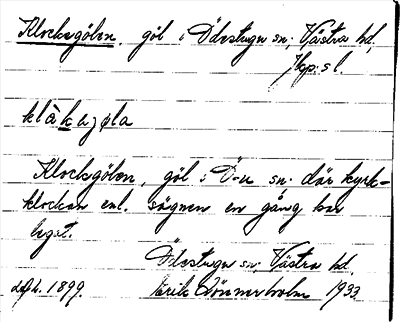 Klocksgölen, göl i Ödestugu sn, Västra hd,
Jkp:s l.
klåkazøla
Klocksgölen, göl i Ö-u sn. där kyrk=
klockan enl. sägnen en gång har
legat.
Ödestugu sn, Västra hd.
1899. Erik Lönnerholm 1933.